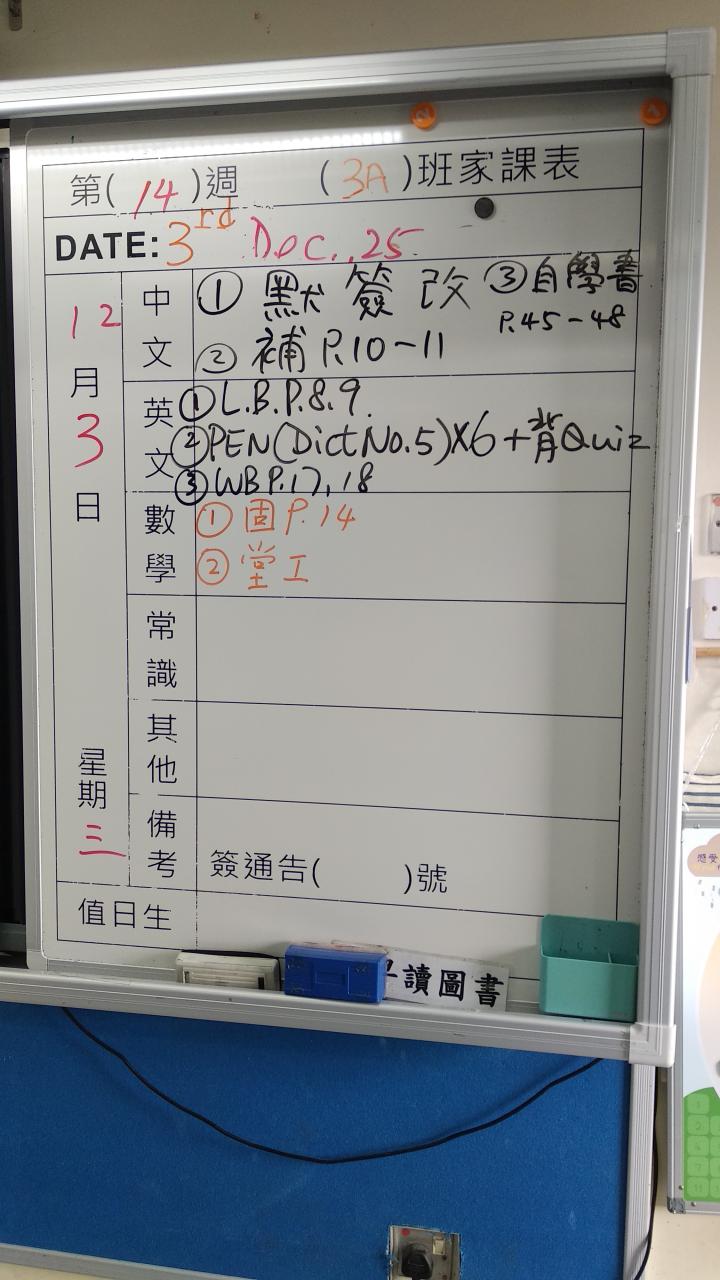 第( 14 )週 ( 3A )班家課表
DATE: 3rd Dec., 25
12月3日 星期三
中文
① 默 簽 改 ③ 自學書
P.45-48
② 補 P.10-11
英文
① L.B.P.8,9.
② PEN(Dict No.5)X6+背Quiz
③ WB P.17, 18
數學
① 固P.14
② 堂工
常識
其他
備考
簽通告( )號
值日生
讀圖書
感受